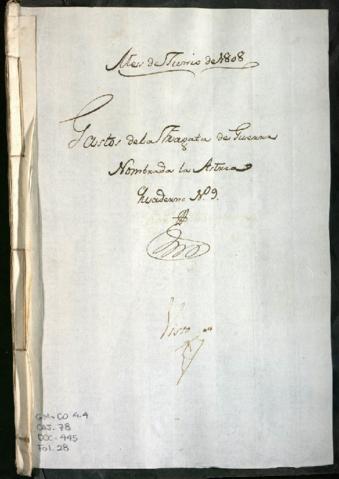 Mes de Junio de 1808
Gastos de la Fragata de Guerra
Nombrada la Astrea
Quaderno N.º 9.
Visto
GM-CO 4.4
CAJ. 78
DOC-445
Fol. 28